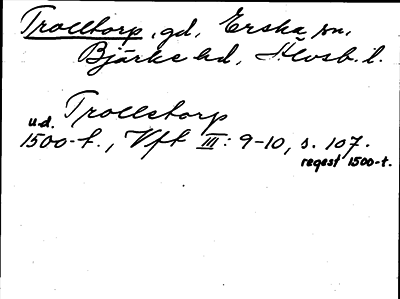 Trolltorp, gd, Erska sn.
Bjärke hd, Älvsb. l.
Trollstorp
u.d.
1500-t., Vft III: 9-10, s. 107.
regest 1500-t.